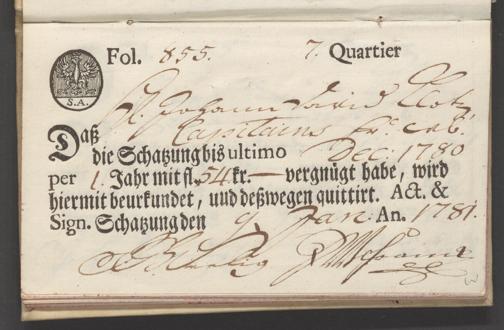 Fol. 855. 7. Quartier
S. A.
H. Johann David Clotz
Capitains
Daß
die Schatzung bis ultimo Dec. 1780
per 1. Jahr mit fl. 54 kr. — vergnügt habe, wird
hiermit beurkundet, und deßwegen quittirt. Act. &
Sign. Schatzung den 9 Jan. An. 1781.